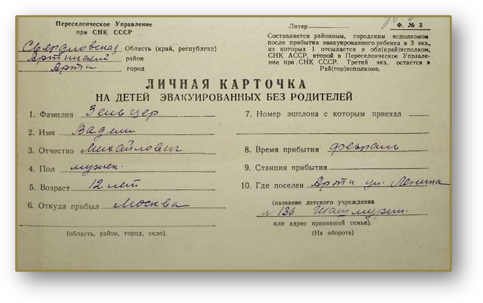 Переселенческое Управление
при СНК СССР
Литер
Ф. № 3
Свердловская Область (край, республ.)
Артинский район
Арти город
Составляется районным, городским исполкомом
после прибытия эвакуированного ребенка в 3 экз.
из которых 1 отсылается в обл(край)исполком,
СНК АССР, второй в Переселенческое Управле-
ние при СНК СССР. Третий экз. остается в
Рай(гор)исполкоме.
ЛИЧНАЯ КАРТОЧКА
НА ДЕТЕЙ ЭВАКУИРОВАННЫХ БЕЗ РОДИТЕЛЕЙ
1. Фамилия Зельцер
2. Имя Вадим
3. Отчество Михайлович
4. Пол мужск.
5. Возраст 12 лет
6. Откуда прибыл Москва
(область, район, город, село).
7. Номер эшелона с которым приехал
8. Время прибытия февраль
9. Станция прибытия
10. Где поселен Арти ул. Ленина
(название детского учреждения
№ 136
или адрес принявшей семьи).
(На обороте)